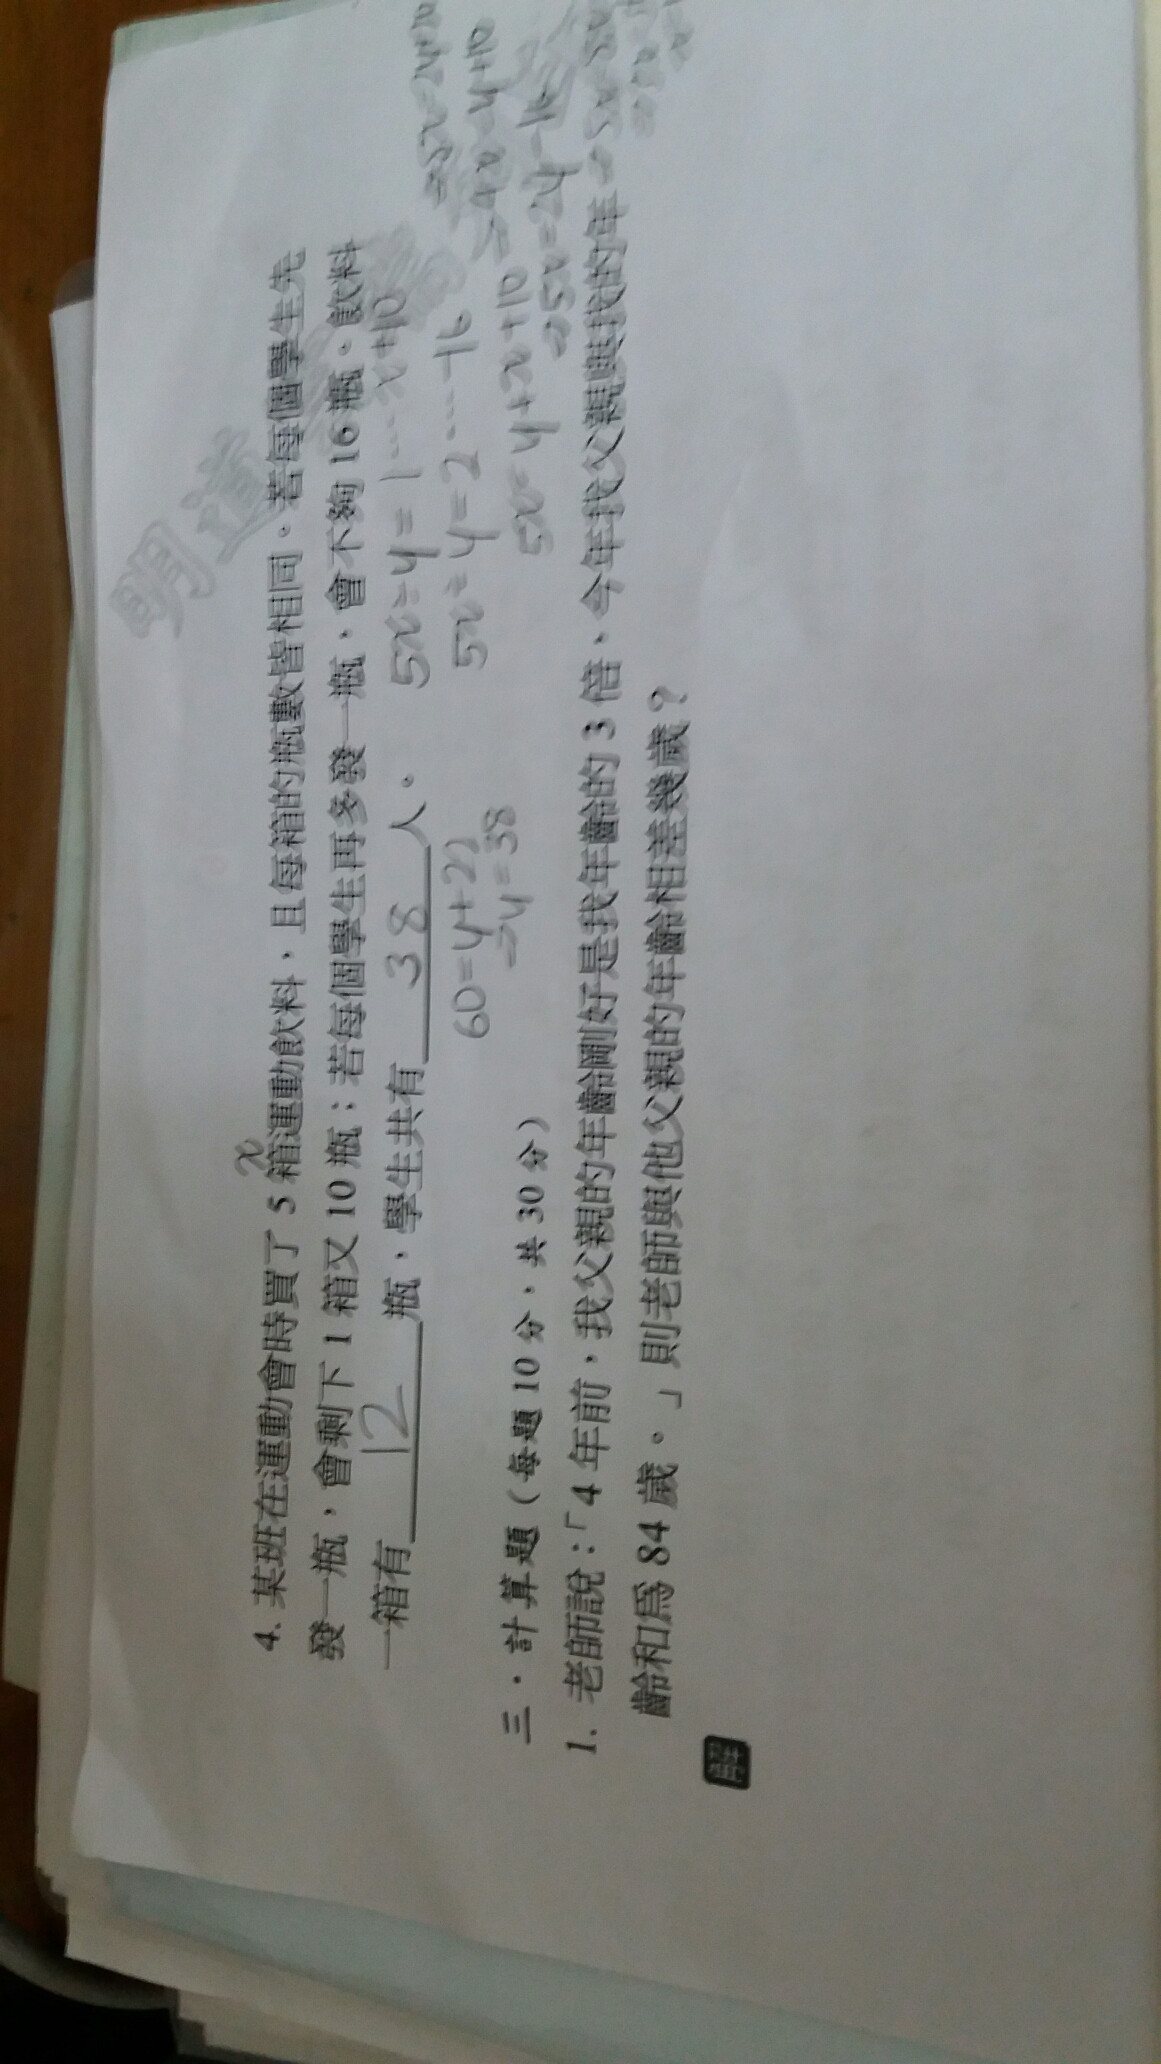 明道
x
4. 某班在運動會時買了 5 箱運動飲料，且每箱的瓶數皆相同。若每個學生先
發一瓶，會剩下 1 箱又 10 瓶；若每個學生再多發一瓶，會不夠 16 瓶。飲料
一箱有 12 瓶，學生共有 38 人。
5x÷y=1…x+10
5x÷y=2…-16
5x=y+x+10
60=y+22
=>y=38
三、計算題（每題 10 分，共 30 分）
1. 老師說：「4 年前，我父親的年齡剛好是我年齡的 3 倍，今年我父親與我的年
齡和為 84 歲。」則老師與他父親的年齡相差幾歲？